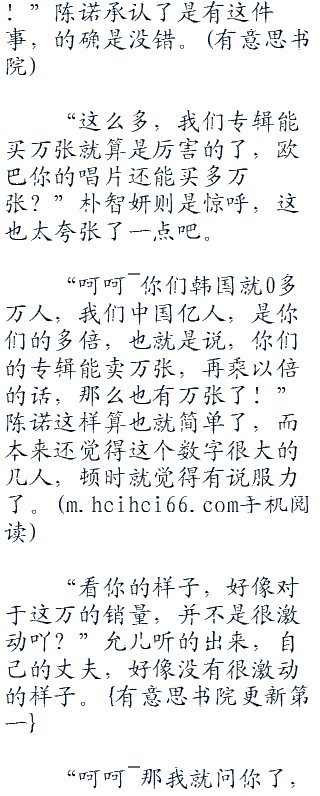 ！”陈诺承认了是有这件
事，的确是没错。(有意思书
院)
“这么多，我们专辑能
买万张就算是厉害的了，欧
巴你的唱片还能买多万
张？”朴智妍则是惊呼，这
也太夸张了一点吧。
“呵呵¯你们韩国就0多
万人，我们中国亿人，是你
们的多倍，也就是说，你们
的专辑能卖万张，再乘以倍
的话，那么也有万张了！”
陈诺这样算也就简单了，而
本来还觉得这个数字很大的
几人，顿时就觉得有说服力
了。(m.hcihci66.com手机阅
读)
“看你的样子，好像对
于这万的销量，并不是很激
动吖？”允儿听的出来，自
己的丈夫，好像没有很激动
的样子。{有意思书院更新第
一}
“呵呵¯那我就问你了，